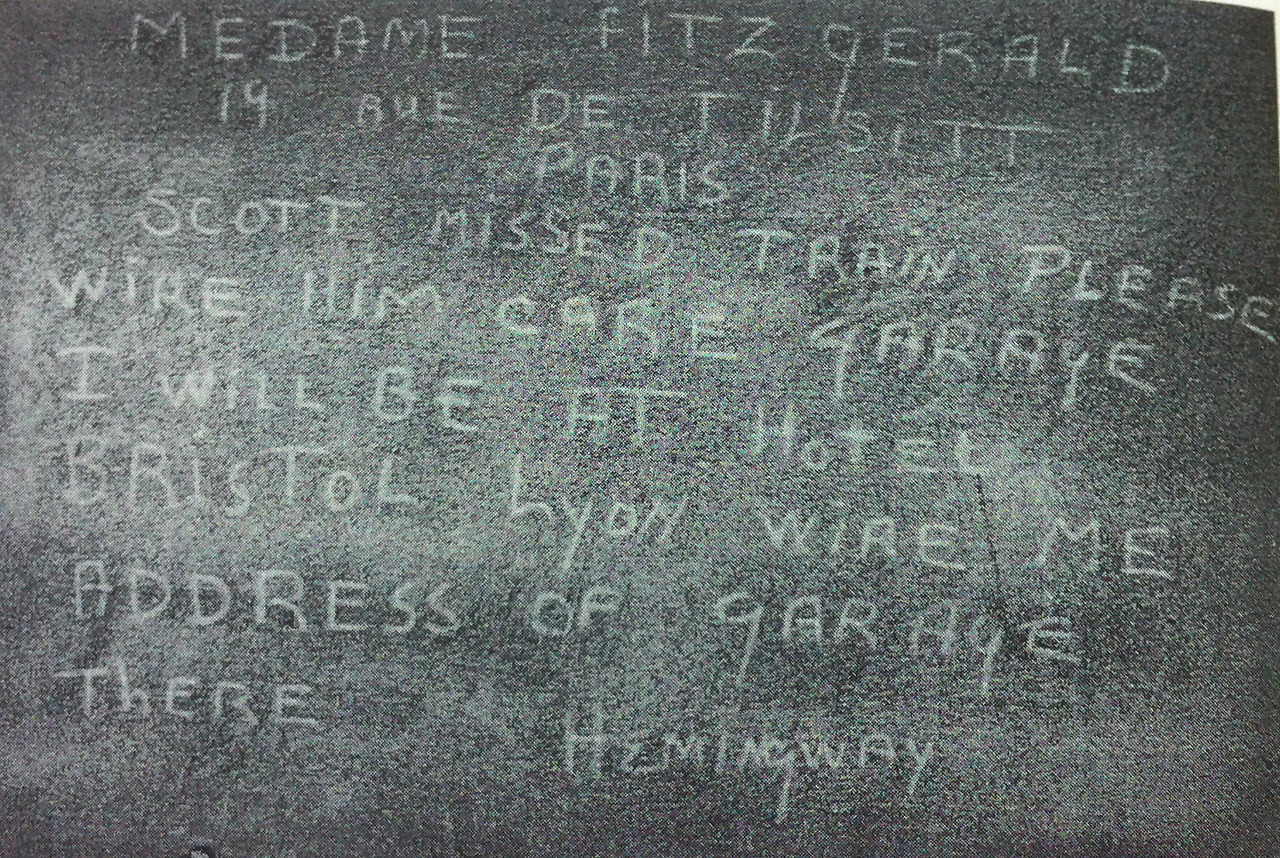 MEDAME FITZgERALD
14 AUE DE TILSITT
PARIS
SCOTT MISSED TRAIN PLEASE
WIRE HIM CARE gARAgE
I WILL BE AT HOTEL
BRISTOL LYON WIRE ME
ADDRESS OF gARAgE
THERE
HEMINgWAY